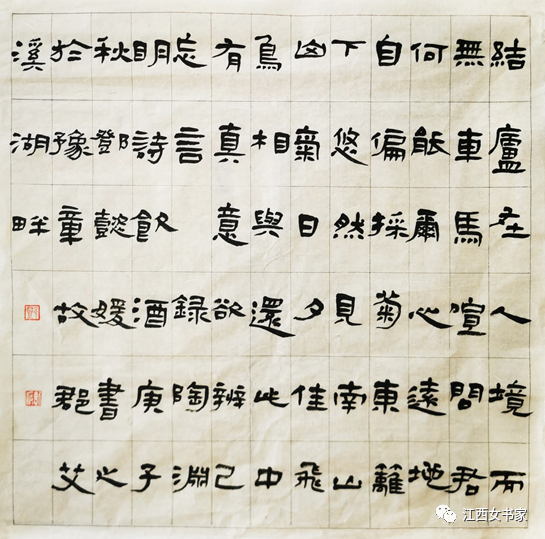 結廬在人境而
無車馬喧問君
何能爾心遠地
自偏採菊東籬
下悠然見南山
山氣日夕佳飛
鳥相與還此中
有真意欲辨已
忘言 録陶淵
明詩飲酒庚子
秋鄧懿媛書之
於豫章故郡艾
溪湖畔
江西女书家